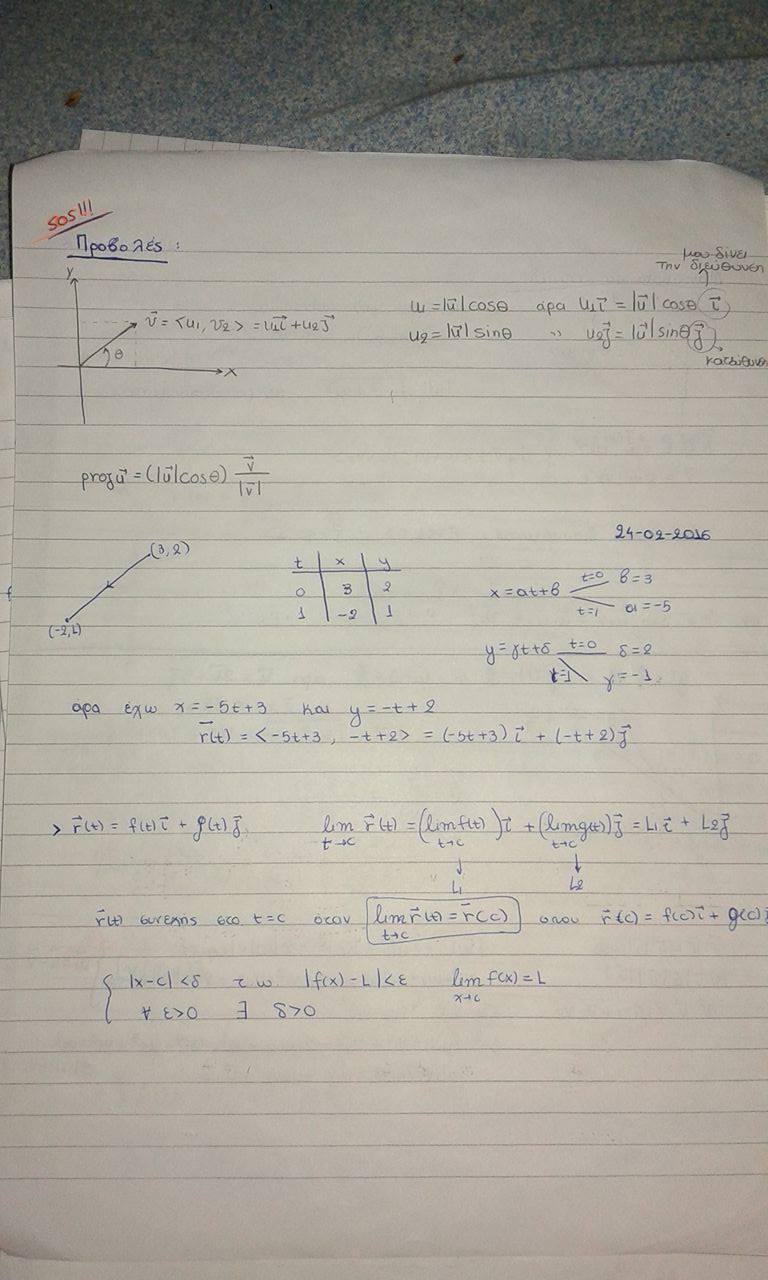 SOS!!!
Προβολές :
y
v⃗ = <u₁, v₂> = u₁i⃗ + u₂j⃗
θ
x
μου δίνει
την διεύθυνση
u₁ = |u⃗| cosθ άρα u₁i⃗ = |u⃗| cosθ i⃗
u₂ = |u⃗| sinθ » u₂j⃗ = |u⃗| sinθ j⃗
κατεύθυνση
proju⃗ = (|u⃗| cosθ) v⃗/|v⃗|
24-02-2016
(3,2)
(-2,1)
t x y
0 3 2
1 -2 1
x = αt+β t=0 β=3
t=1 α=-5
y = γt+δ t=0 δ=2
t=1 γ=-1
άρα έχω x = -5t+3 και y = -t+2
r⃗(t) = <-5t+3, -t+2> = (-5t+3) i⃗ + (-t+2) j⃗
> r⃗(t) = f(t) i⃗ + g(t) j⃗ lim t→c r⃗(t) = (lim t→c f(t)) i⃗ + (lim t→c g(t)) j⃗ = L₁ i⃗ + L₂ j⃗
↓ L₁ ↓ L₂
r⃗(t) συνεχής στο t=c όταν lim t→c r⃗(t) = r⃗(c) όπου r⃗(c) = f(c) i⃗ + g(c) j⃗
{ |x-c| < δ τω |f(x)-L| < ε lim x→c f(x) = L
∀ ε>0 ∃ δ>0